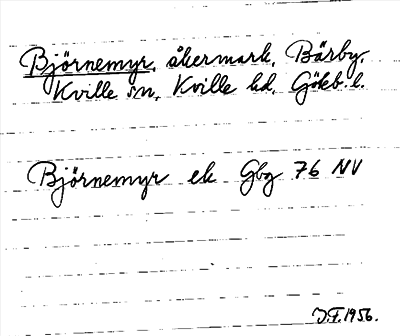 Björnemyr, åkermark, Bärby,
Kville sn, Kville hd, Göteb. l.
Björnemyr ek Gbg 76 NV
J.F. 1956.